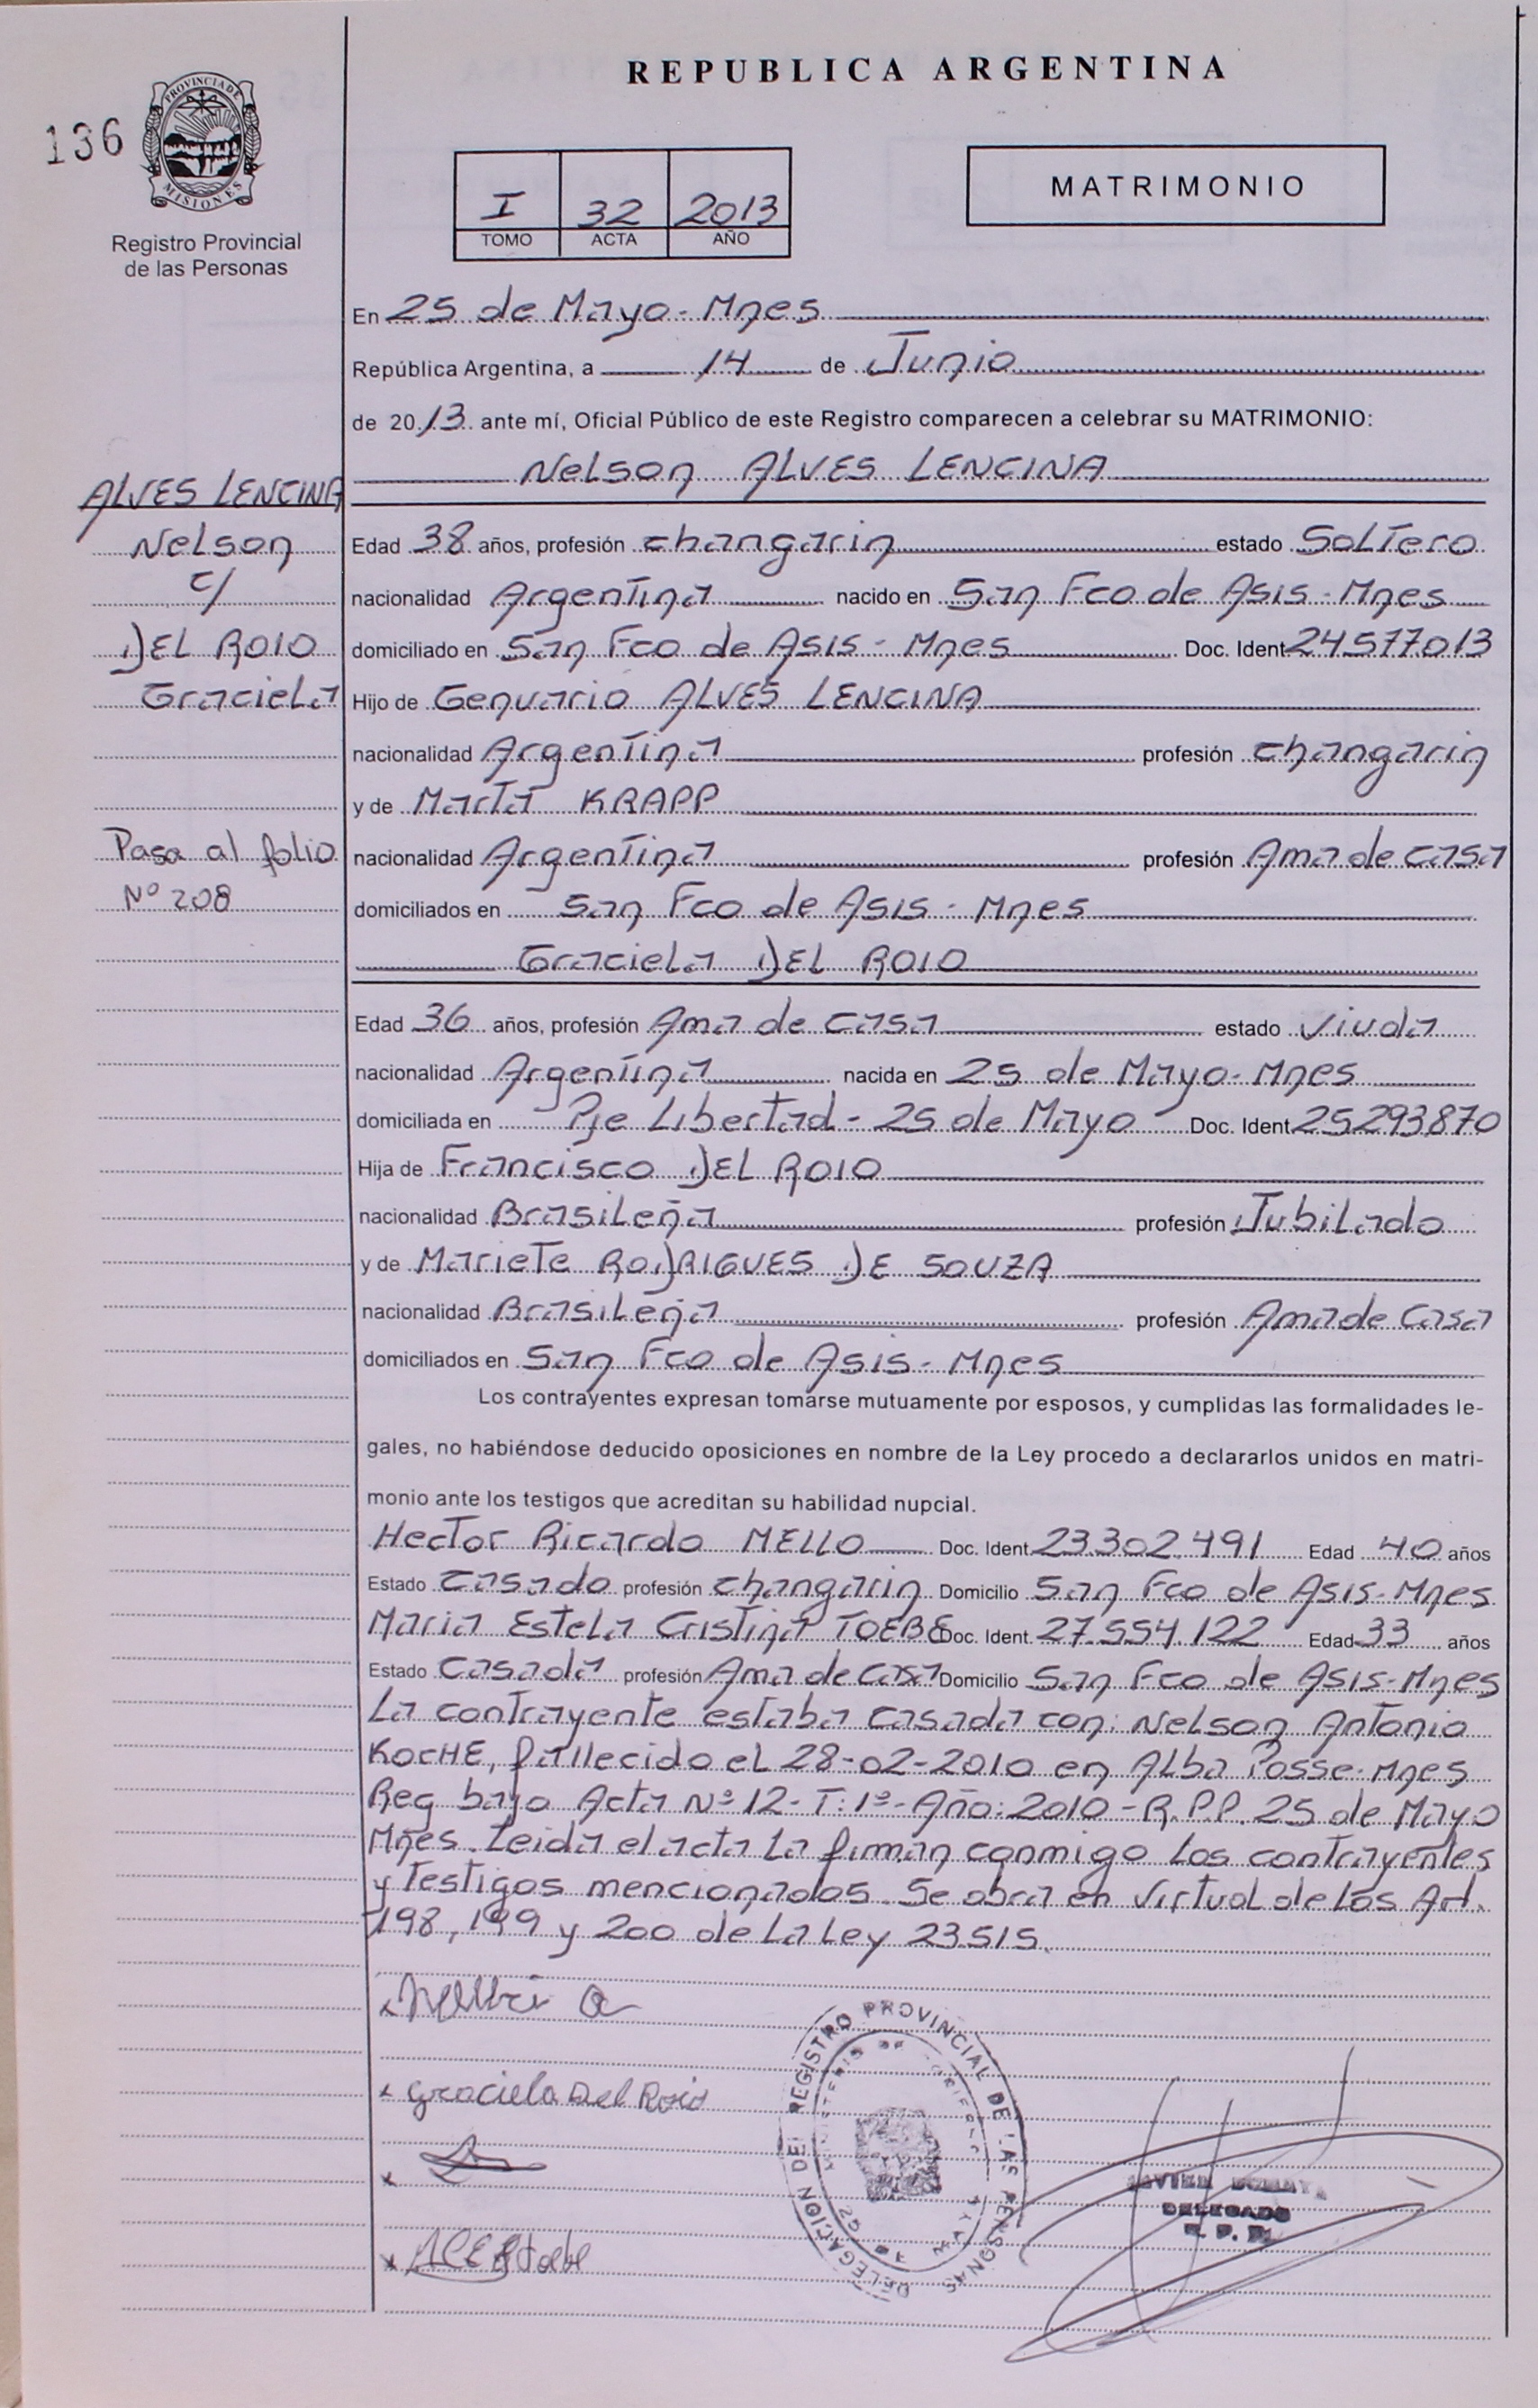 REPUBLICA ARGENTINA
136
PROVINCIA DE MISIONES
Registro Provincial
de las Personas
I 32 2013
TOMO ACTA AÑO
MATRIMONIO
En 25 de Mayo - Mnes
República Argentina, a 14 de Junio
de 2013 ante mí, Oficial Público de este Registro comparecen a celebrar su MATRIMONIO:
Nelson ALVES LENCINA
ALVES LENCINA
Nelson
c/
DEL ROIO
Graciela
Pasa al folio
Nº 208
Edad 38 años, profesión changarin estado Soltero
nacionalidad Argentina nacido en San Fco de Asis - Mnes
domiciliado en San Fco de Asis - Mnes Doc. Ident 24577013
Hijo de Genuario ALVES LENCINA
nacionalidad Argentina profesión changarin
y de Marta KRAPP
nacionalidad Argentina profesión Ama de casa
domiciliados en San Fco de Asis - Mnes
Graciela DEL ROIO
Edad 36 años, profesión Ama de casa estado Viuda
nacionalidad Argentina nacida en 25 de Mayo - Mnes
domiciliada en Pje Libertad - 25 de Mayo Doc. Ident 25293870
Hija de Francisco DEL ROIO
nacionalidad Brasileña profesión Jubilado
y de Mariete RODRIGUES DE SOUZA
nacionalidad Brasileña profesión Ama de Casa
domiciliados en San Fco de Asis - Mnes
Los contrayentes expresan tomarse mutuamente por esposos, y cumplidas las formalidades le-
gales, no habiéndose deducido oposiciones en nombre de la Ley procedo a declararlos unidos en matri-
monio ante los testigos que acreditan su habilidad nupcial.
Hector Ricardo MELLO Doc. Ident. 23.302.491 Edad 40 años
Estado Casado profesión changarin Domicilio San Fco de Asis - Mnes
Maria Estela Cristina TOEBE Doc. Ident. 27.554.122 Edad 33 años
Estado Casada profesión Ama de casa Domicilio San Fco de Asis - Mnes
La contrayente estaba casada con: Nelson Antonio
KOCHE, fallecido el 28-02-2010 en Alba Posse - Mnes
Reg bajo Acta Nº 12 - T: 1º - Año: 2010 - R.P.P. 25 de Mayo
Mnes. Leida el acta la firman conmigo los contrayentes
y testigos mencionados. Se obra en virtual de los Art.
198, 199 y 200 de la Ley 23515.
x
x Graciela Del Roio
x
x
DELEGACION DEL REGISTRO PROVINCIAL DE LAS PERSONAS
DELEGADO
R. P. P.